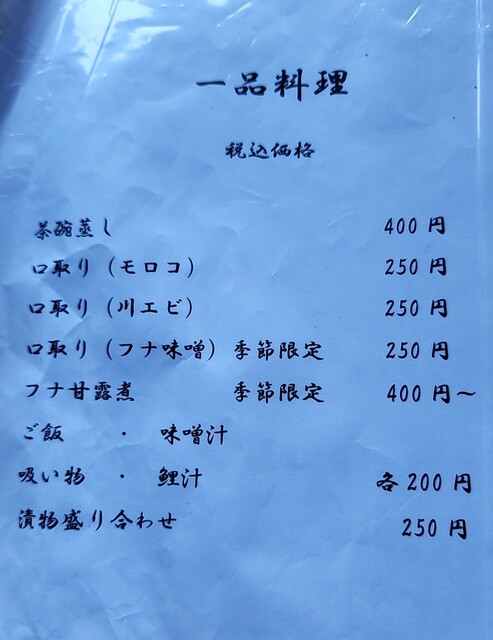 一品料理
税込価格
茶碗蒸し 400 円
口取り（モロコ） 250 円
口取り（川エビ） 250 円
口取り（フナ味噌）季節限定 250 円
フナ甘露煮 季節限定 400 円～
ご飯 ・ 味噌汁
吸い物 ・ 鯉汁 各 200 円
漬物盛り合わせ 250 円